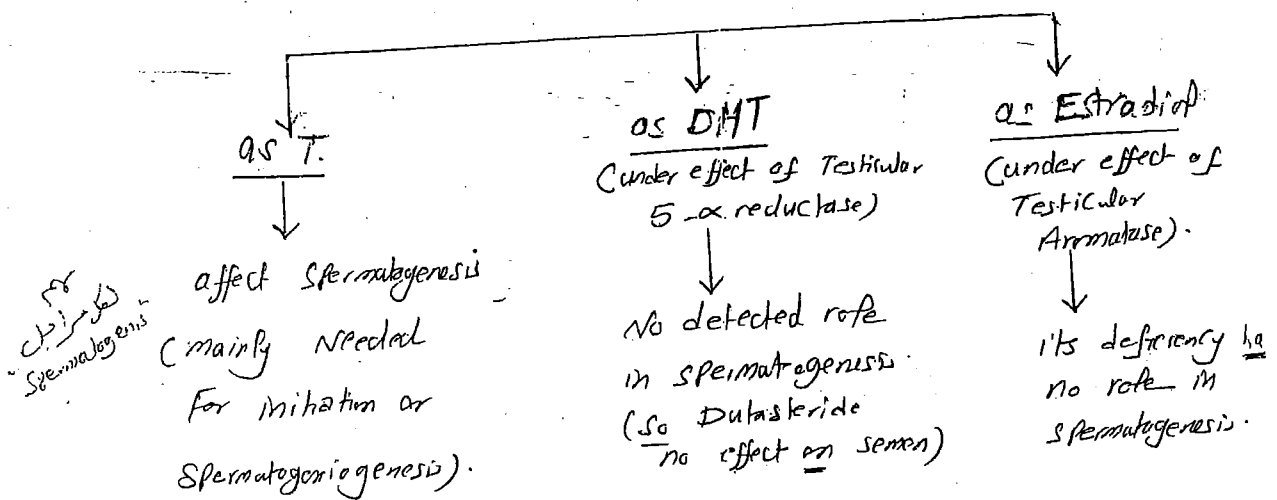 as T.
affect Spermatogenesis
(mainly Needed
For initiation or
Spermatogoniogenesis).
مهم
لكل مراحل
"Spermatogenesis"
as DHT
(under effect of Testicular
5-α reductase)
No detected role
in spermatogenesis.
(So Dutasteride
no effect on semen)
as Estradiol
(under effect of
Testicular
Aromatase).
its deficiency ha
no role in
spermatogenesis.